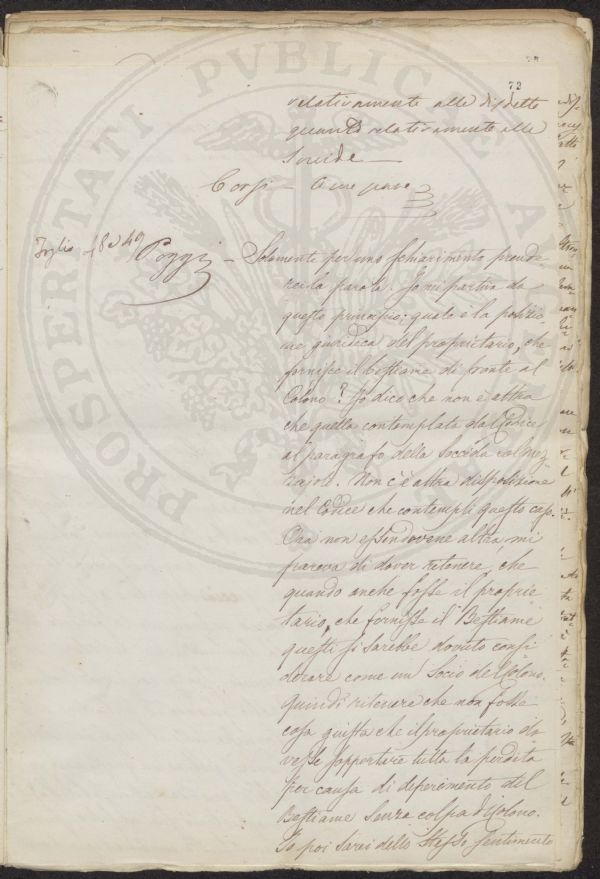 72
relativamente alle disdette
quanto relativamente alle
Soccide —
Corsi —
Foglio
Poggi — Solamente per uno schiarimento prende
rei la parola. Io mi partiva da
questo principio: quale è la posizio
ne giuridica del proprietario, che
fornisce il bestiame di fronte al
Colono? Io dico che non è altra
che quella contemplata dal Codice
al paragrafo della Soccida col mez
zajolo. Non c'è altra disposizione
nel Codice che contempli questo caso.
Ora non essendovene altra, mi
pareva di dover ritenere, che
quando anche fosse il proprie
tario, che fornisse il Bestiame
questi si sarebbe dovuto consi
derare come un Socio del Colono.
Quindi ritenere che non fosse
cosa giusta che il proprietario do
vesse sopportare tutta la perdita
per causa di deperimento del
Bestiame senza colpa del Colono.
Io poi sarei dello stesso sentimento
PROSPERITATI PUBLICAE AUGENDAE